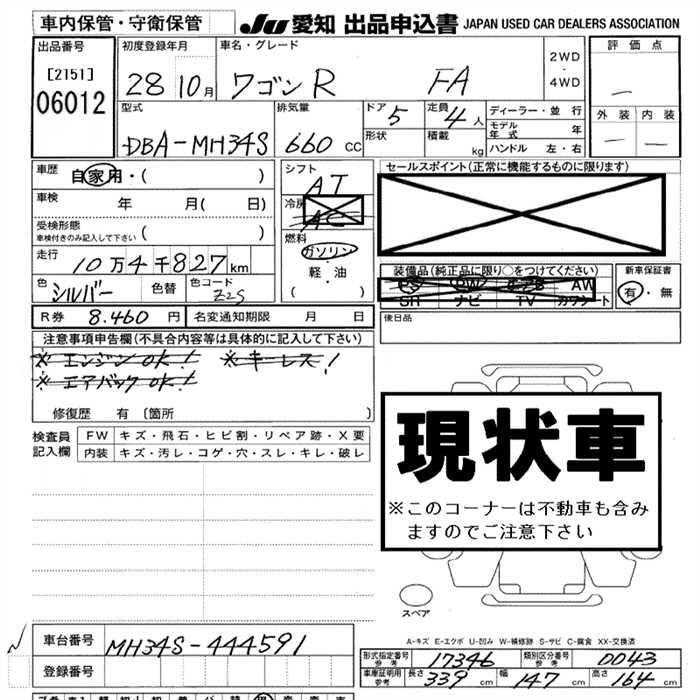 車内保管・守衛保管
JU 愛知 出品申込書 JAPAN USED CAR DEALERS ASSOCIATION
出品番号 初度登録年月 車名・グレード 評価点
[2151] 28 10月 ワゴンR FA 2WD・4WD
06012 外装 内装
型式 排気量 ドア 5 定員 4人 ディーラー・並行
DBA-MH34S 660 CC 形状 積載 kg モデル年式 年
ハンドル 左・右
車歴 自家用・( )
シフト AT
セールスポイント(正常に機能するものに限ります)
車検 年 月( 日)
冷房 AC
受検形態 ( )
車検付きのみ記入して下さい
燃料 ガソリン・軽・油
( )
走行 10万4千827km
装備品(純正品に限り○をつけてください) 新車保証書
PS PW AW 有・無
SR ナビ TV カワシート
色 シルバー 色替 色コード Z2S
R券 8.460円 名変通知期限 月 日
後日品
注意事項申告欄(不具合内容等は具体的に記入して下さい)
※エンジンOK! ※キーレス!
※エアバックOK!
修復歴 有 〔箇所 〕
検査員記入欄 FW キズ・飛石・ヒビ割・リペア跡・X要
内装 キズ・汚レ・コゲ・穴・スレ・キレ・破レ
現状車
※このコーナーは不動車も含み
ますのでご注意下さい
スペア
A-キズ E-エクボ U-凹み W-補修跡 S-サビ C-腐食 XX-交換済
車台番号 MH34S-444591
登録番号
形式指定番号 参考 17346 類別区分番号 参考 0043
車庫証明用参考 長さ 339cm 幅 147cm 高さ 164cm